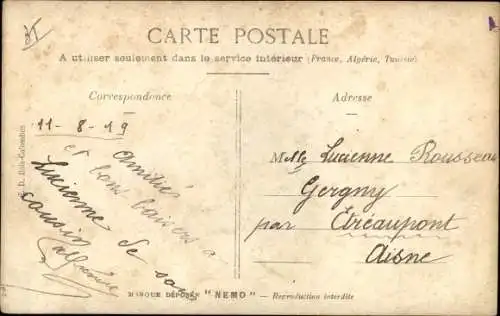 CARTE POSTALE
A utiliser seulement dans le service intérieur (France, Algérie, Tunisie)
Correspondance
11-8-19
Amitiés
et bons baisers à
Lucienne de son
cousin
Adresse
Melle Lucienne Rousseau
Gergny
par Etréaupont
Aisne
MARQUE DÉPOSÉE "NEMO" — Reproduction interdite